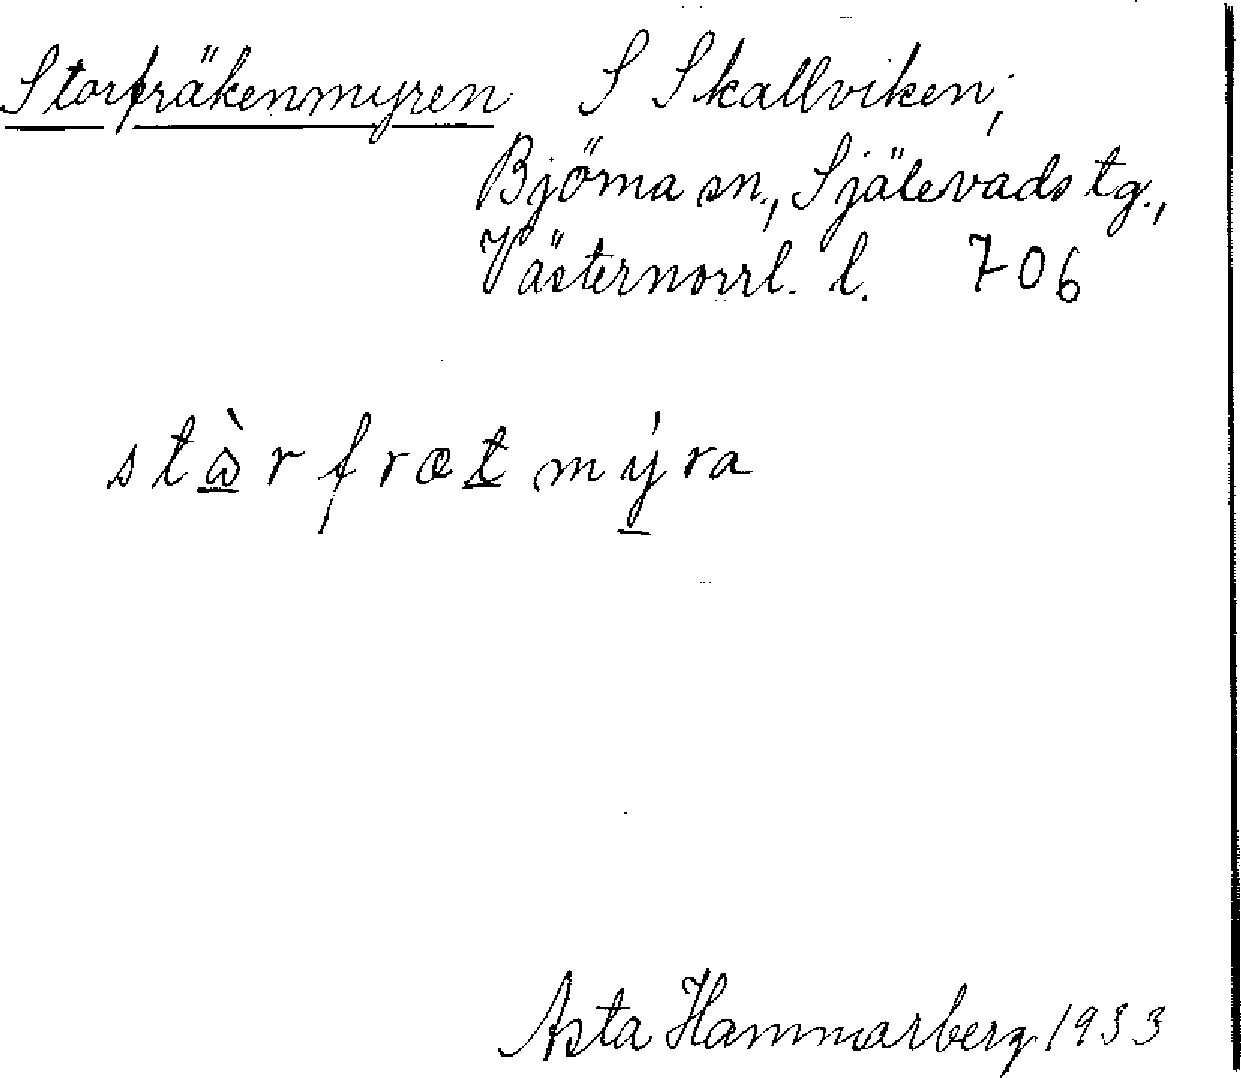 Storfräkenmyren S Skallviken,
Björna sn., Själevads tg.,
Västernorrl. l. 706
stὼrfrætmýra
Asta Hammarberg 1933